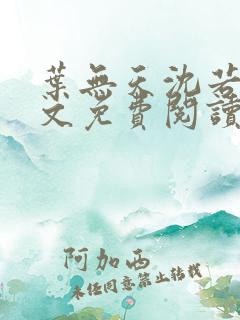 葉無天沈若
文免費閱讀
阿加西
未經同意禁止轉載